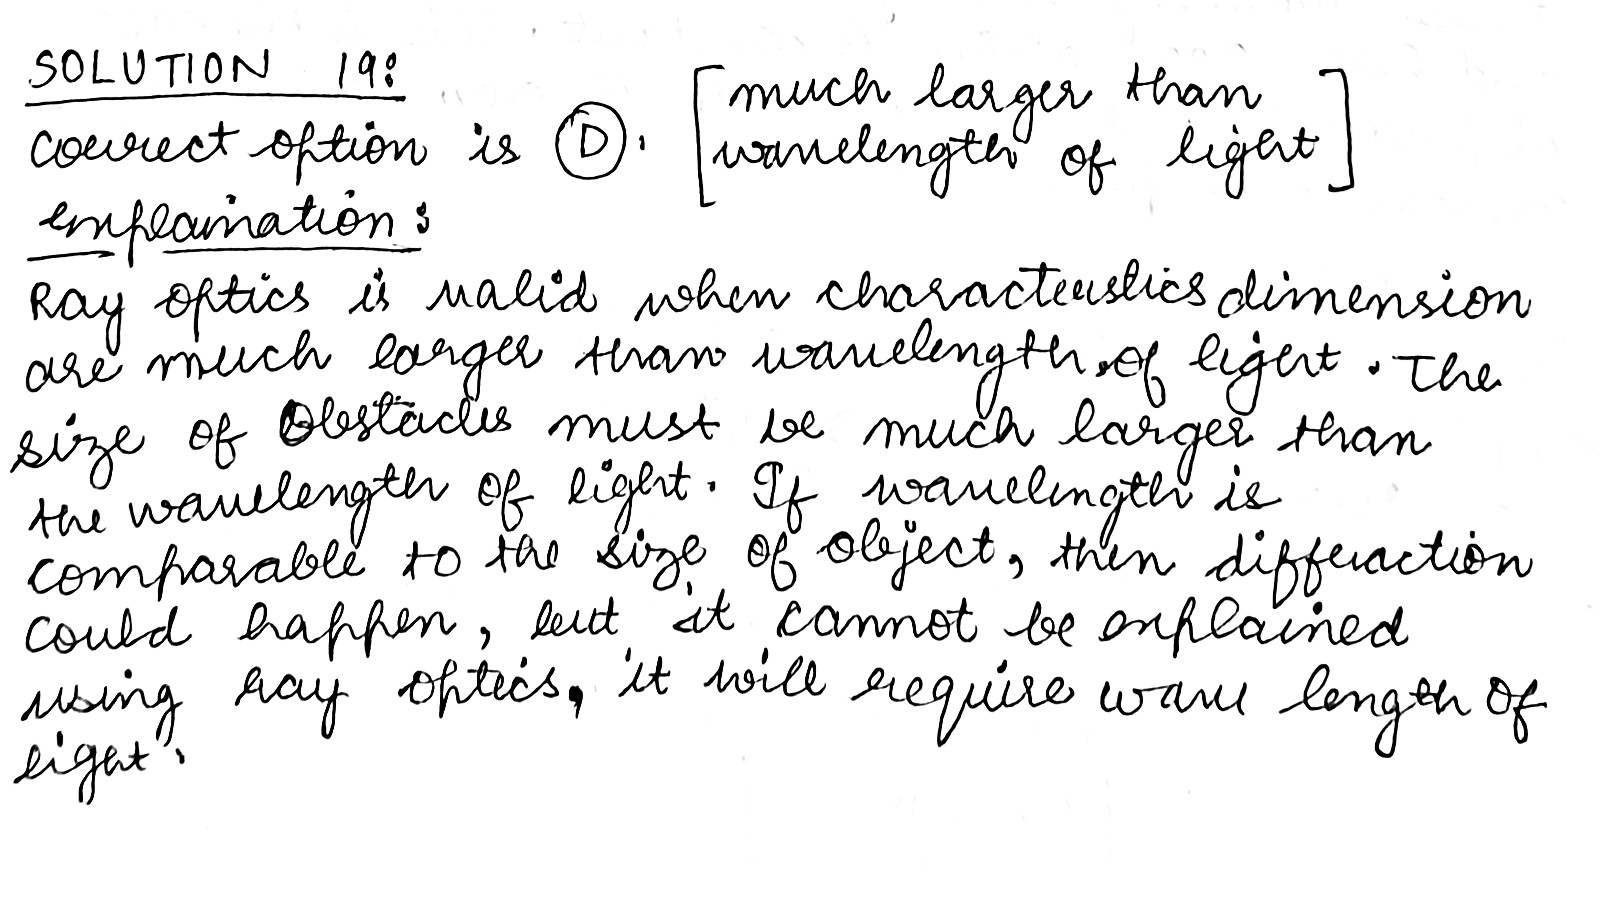 SOLUTION 19:
correct option is (D). [much larger than
wavelength of light]
explaination:
Ray optics is valid when characteristics dimension
are much larger than wavelength of light. The
size of Obstacles must be much larger than
the wavelength of light. If wavelength is
comparable to the size of object, then diffraction
could happen, but it cannot be explained
using ray optics, it will require wave length of
light.